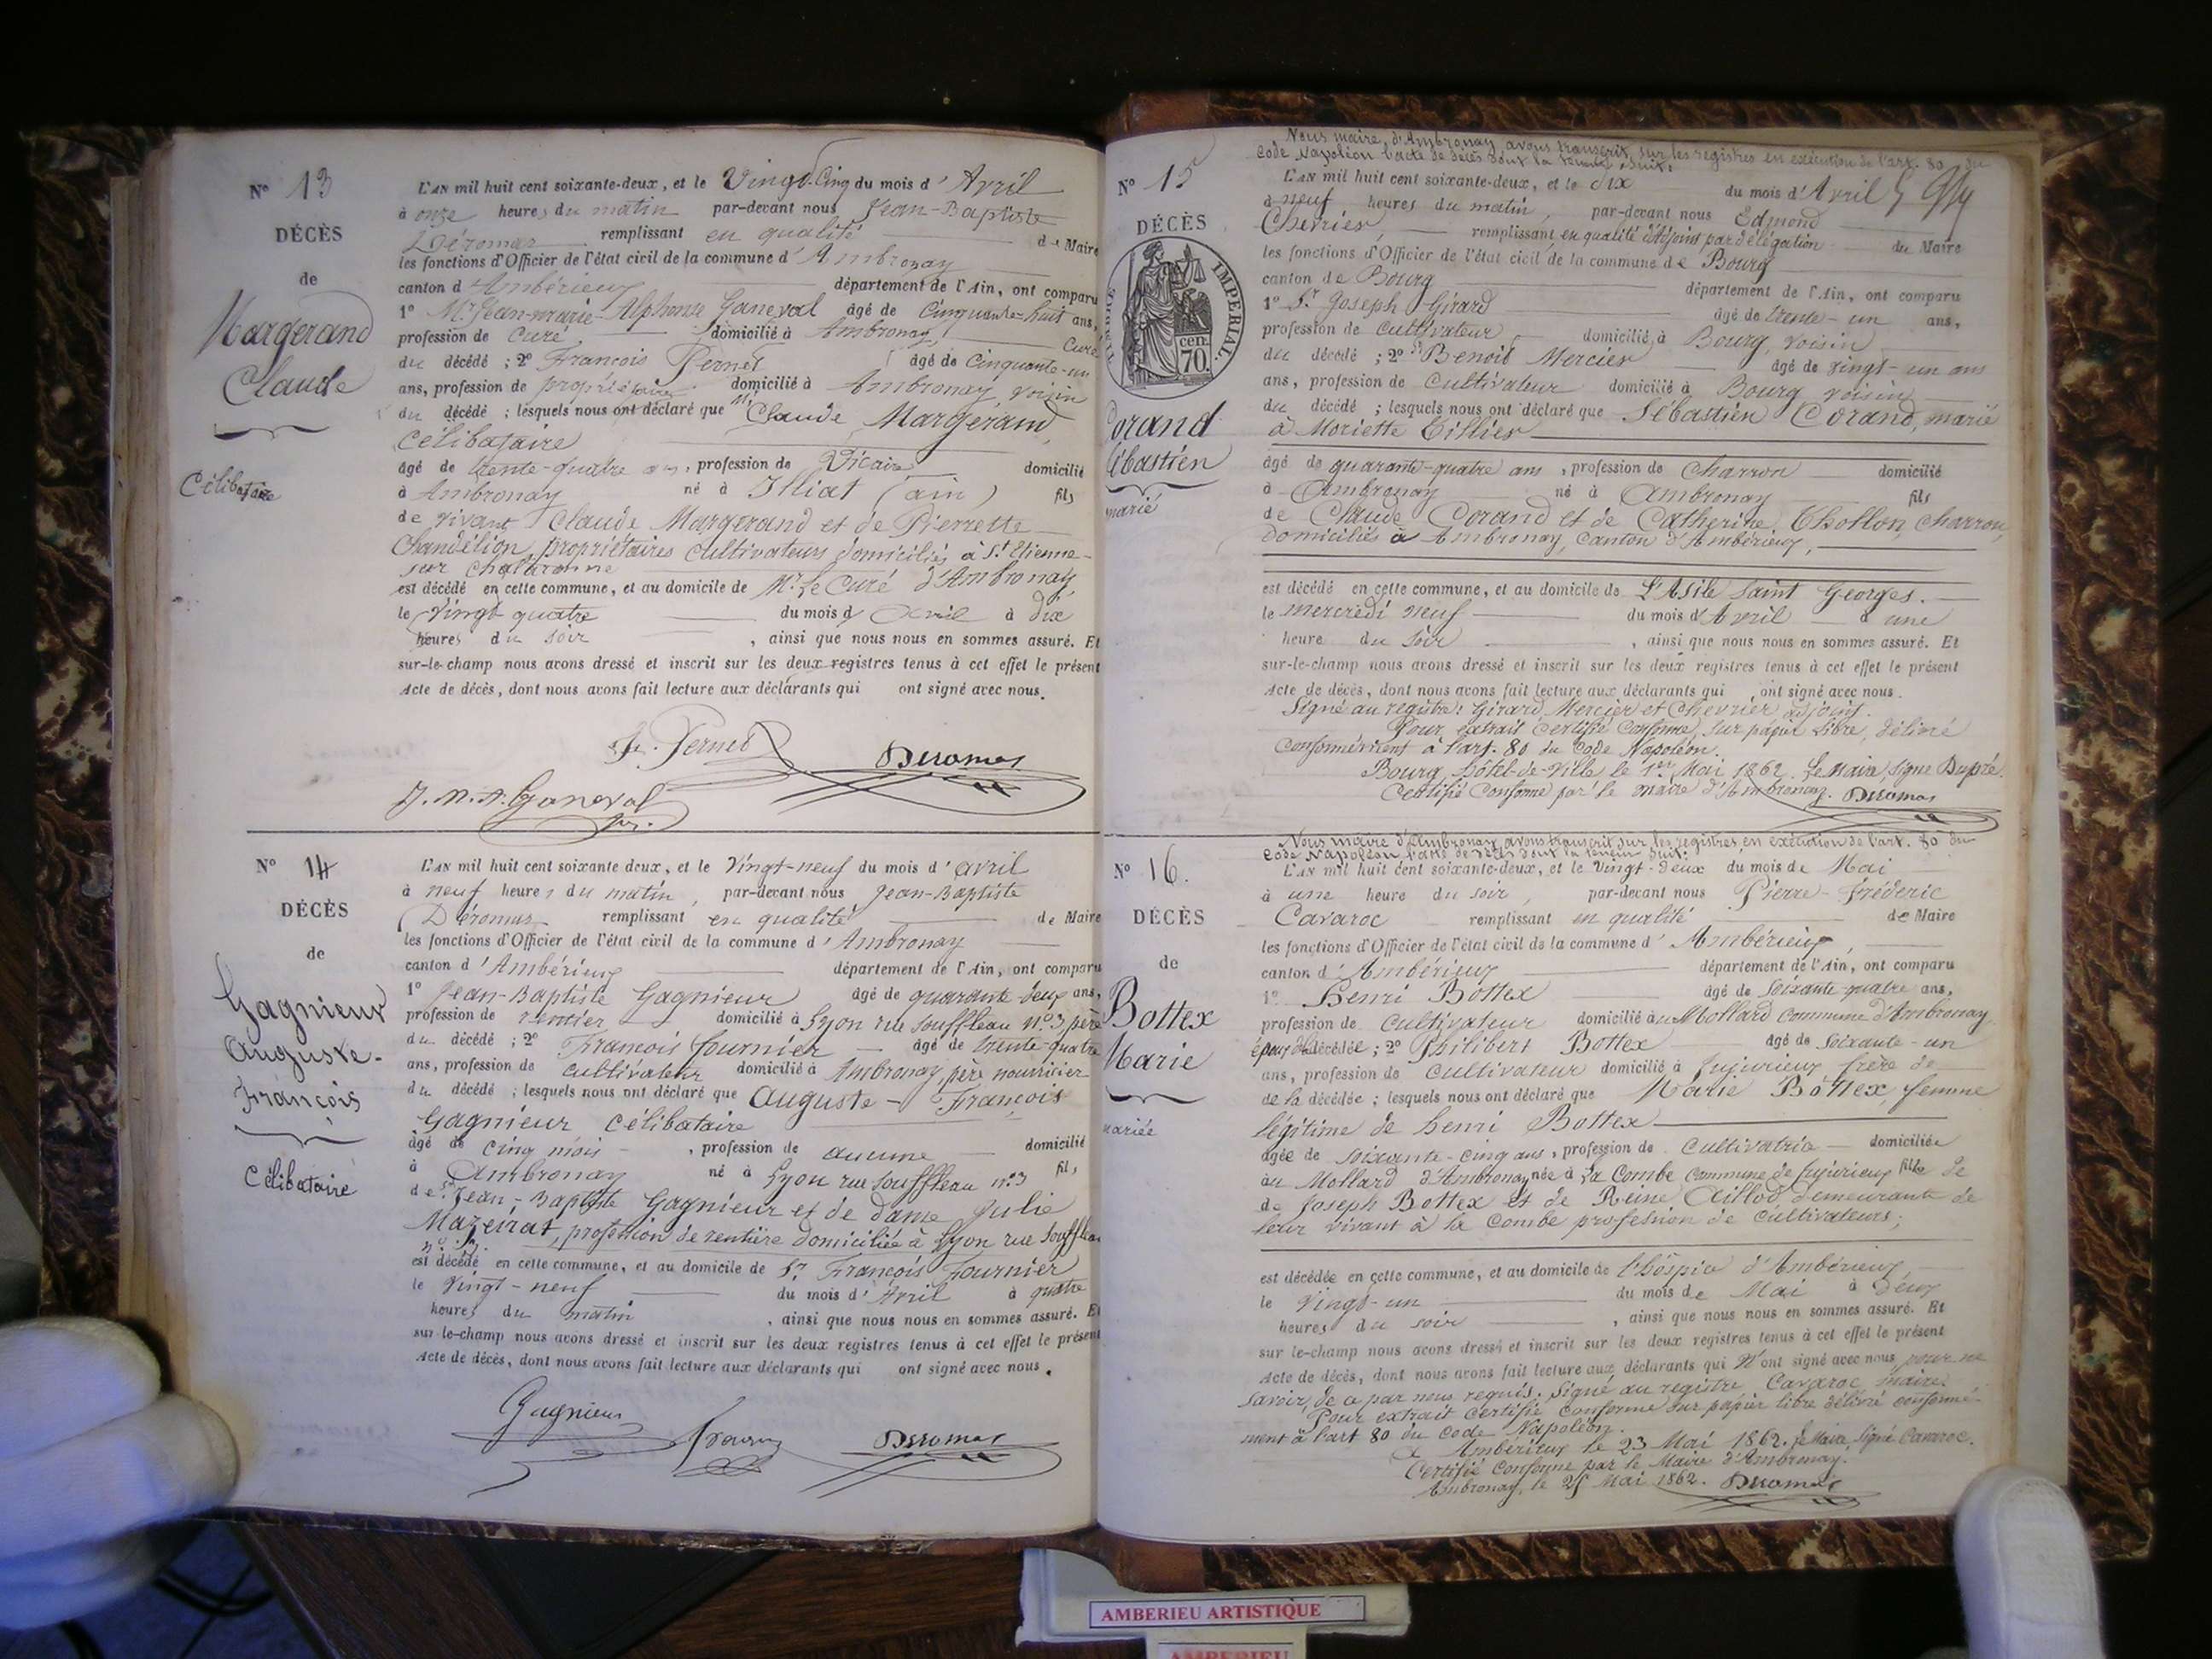 N° 13
DÉCÈS
de
Margerand
Claude
Célibataire
L'AN mil huit cent soixante-deux, et le Vingt-Cinq du mois d'Avril
à onze heures du matin par-devant nous Jean-Baptiste
Déromas remplissant en qualité de Maire
les fonctions d'Officier de l'état civil de la commune d'Ambronay
canton d'Ambérieux département de l'Ain, ont comparu
1° Mr Jean-marie-Alphonse Ganeval âgé de Cinquante-huit ans,
profession de Curé domicilié à Ambronay, Curé
du décédé ; 2° François Pernet âgé de Cinquante-un
ans, profession de propriétaire domicilié à Ambronay, voisin
du décédé ; lesquels nous ont déclaré que Mr Claude Margerand,
Célibataire
âgé de trente-quatre ans, profession de Vicaire domicilié
à Ambronay né à Illiat (ain) fils
de vivant Claude Margerand et de Pierrette
Chandélion, propriétaires cultivateurs domiciliés à St Etienne-
sur Chalaronne
est décédé en cette commune, et au domicile de Mr le Curé d'Ambronay,
le Vingt quatre du mois d'Avril à dix
heures du soir, ainsi que nous nous en sommes assuré. Et
sur-le-champ nous avons dressé et inscrit sur les deux registres tenus à cet effet le présent
Acte de décès, dont nous avons fait lecture aux déclarants qui ont signé avec nous.
Pernet Deromas
J. M. A. Ganeval
N° 14
DÉCÈS
de
Gagnieur
Auguste-
François
Célibataire
L'AN mil huit cent soixante deux, et le Vingt-neuf du mois d'avril
à neuf heures du matin, par-devant nous Jean-Baptiste
Déromas remplissant en qualité de Maire
les fonctions d'Officier de l'état civil de la commune d'Ambronay
canton d'Ambérieux département de l'Ain, ont comparu
1° Jean-Baptiste Gagnieur âgé de quarante-deux ans,
profession de rentier domicilié à Lyon rue Souffleau N° 3, père
du décédé ; 2° François Fournier âgé de trente-quatre
ans, profession de cultivateur domicilié à Ambronay, père nourricier
du décédé ; lesquels nous ont déclaré que Auguste-François
Gagnieur Célibataire
âgé de Cinq mois, profession de aucune domicilié
à Ambronay né à Lyon rue Souffleau n° 3 fils
de Sr Jean-Baptiste Gagnieur et de dame Julie
Mazeirat, profession de rentière domiciliée à Lyon rue Souffleau
n° 3
est décédé en cette commune, et au domicile de Sr François Fournier
le Vingt-neuf du mois d'Avril à quatre
heures du matin, ainsi que nous nous en sommes assuré. Et
sur le-champ nous avons dressé et inscrit sur les deux registres tenus à cet effet le présent
Acte de décès, dont nous avons fait lecture aux déclarants qui ont signé avec nous.
Gagnieur Deromas
Nous maire d'Ambronay avons transcrit sur les registres en exécution de l'art. 80 du
Code Napoléon l'acte de décès dont la teneur suit.
N° 15
DÉCÈS
TIMBRE IMPÉRIAL.
cen.
70.
Corand
Sébastien
marié
L'AN mil huit cent soixante-deux, et le dix du mois d'Avril
à neuf heures du matin, par-devant nous Edmond
Chevrier, remplissant en qualité d'Adjoint par délégation du Maire
les fonctions d'Officier de l'état civil de la commune de Bourg
canton de Bourg département de l'Ain, ont comparu
1° Sr Joseph Girard âgé de trente-un ans,
profession de Cultivateur domicilié à Bourg, voisin
du décédé ; 2° Sr Benoit Mercier âgé de vingt-un ans
ans, profession de Cultivateur domicilié à Bourg voisin
du décédé ; lesquels nous ont déclaré que Sébastien Corand, marié
à Moriette Tillier
âgé de quarante-quatre ans, profession de Charron domicilié
à Ambronay né à Ambronay fils
de Claude Corand et de Catherine Thollon, Charron,
domiciliés à Ambronay, Canton d'Ambérieux,
est décédé en cette commune, et au domicile de L'Asile Saint Georges.
le mercredi neuf du mois d'Avril à une
heure du soir, ainsi que nous nous en sommes assuré. Et
sur-le-champ nous avons dressé et inscrit sur les deux registres tenus à cet effet le présent
Acte de décès, dont nous avons fait lecture aux déclarants qui ont signé avec nous.
Signé au registre : Girard, Mercier et Chevrier adjoint.
Pour extrait certifié conforme, sur papier libre, délivré
conformément à l'art. 80 du Code Napoléon.
Bourg, hôtel-de-Ville le 1er Mai 1862. Le Maire, Signé Dupré.
Certifié Conforme par le maire d'Ambronay. Deromas
Nous maire d'Ambronay avons transcrit sur les registres en exécution de l'art. 80 du
Code Napoléon l'acte de décès dont la teneur suit.
N° 16.
DÉCÈS
de
Bottex
Marie
mariée
L'AN mil huit cent soixante-deux, et le Vingt-deux du mois de Mai
à une heure du soir, par-devant nous Pierre-Fréderic
Cavaroc remplissant en qualité de Maire
les fonctions d'Officier de l'état civil de la commune d'Ambérieux,
canton d'Ambérieux département de l'Ain, ont comparu
1° Henri Bottex âgé de Soixante-quatre ans,
profession de Cultivateur domicilié au Mollard Commune d'Ambronay,
époux décédée ; 2° Philibert Bottex âgé de Soixante-un
ans, profession de Cultivateur domicilié à Jujurieux frère de
de la décédée ; lesquels nous ont déclaré que Marie Bottex, femme
légitime de henri Bottex
âgée de Soixante-cinq ans, profession de Cultivatrice domiciliée
au Mollard d'Ambronay née à La Combe Commune de Jujurieux fille de
de Joseph Bottex et de Reine demeurants de
leur vivant à la Combe profession de Cultivateurs;
est décédée en cette commune, et au domicile de l'hospice d'Ambérieux,
le Vingt-un du mois de Mai à deux
heures du soir, ainsi que nous nous en sommes assuré. Et
sur le-champ nous avons dressé et inscrit sur les deux registres tenus à cet effet le présent
Acte de décès, dont nous avons fait lecture aux déclarants qui N'ont signé avec nous, pour ne
savoir, de ce par nous requis. Signé au registre Cavaroc, maire.
Pour extrait certifié conforme sur papier libre délivré conformé-
ment à l'art 80 du Code Napoléon.
Ambérieux le 23 Mai 1862. Le Maire, Signé Cavaroc.
Certifié Conforme par le Maire d'Ambronay.
Ambronay, le 25 Mai 1862. Deromas
AMBERIEU ARTISTIQUE
AMBERIEU